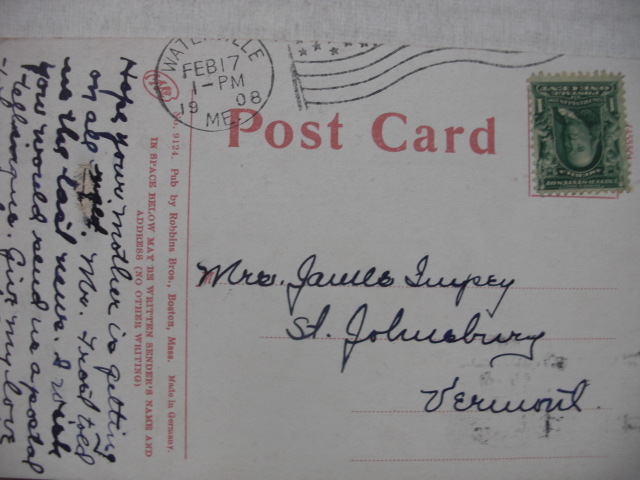 WATERVILLE
FEB 17
1-PM
19 08
ME.
Post Card
1 1
Mrs. James Impey
St. Johnsbury
Vermont.
No. 9124. Pub by Robbins Bros., Boston, Mass. Made in Germany.
IN SPACE BELOW MAY BE WRITTEN SENDER'S NAME AND
ADDRESS (NO OTHER WRITING)
Hope your mother is getting
on all right. Mr. Frost told
us the last news. I wish
you would send us a postal
Give my love